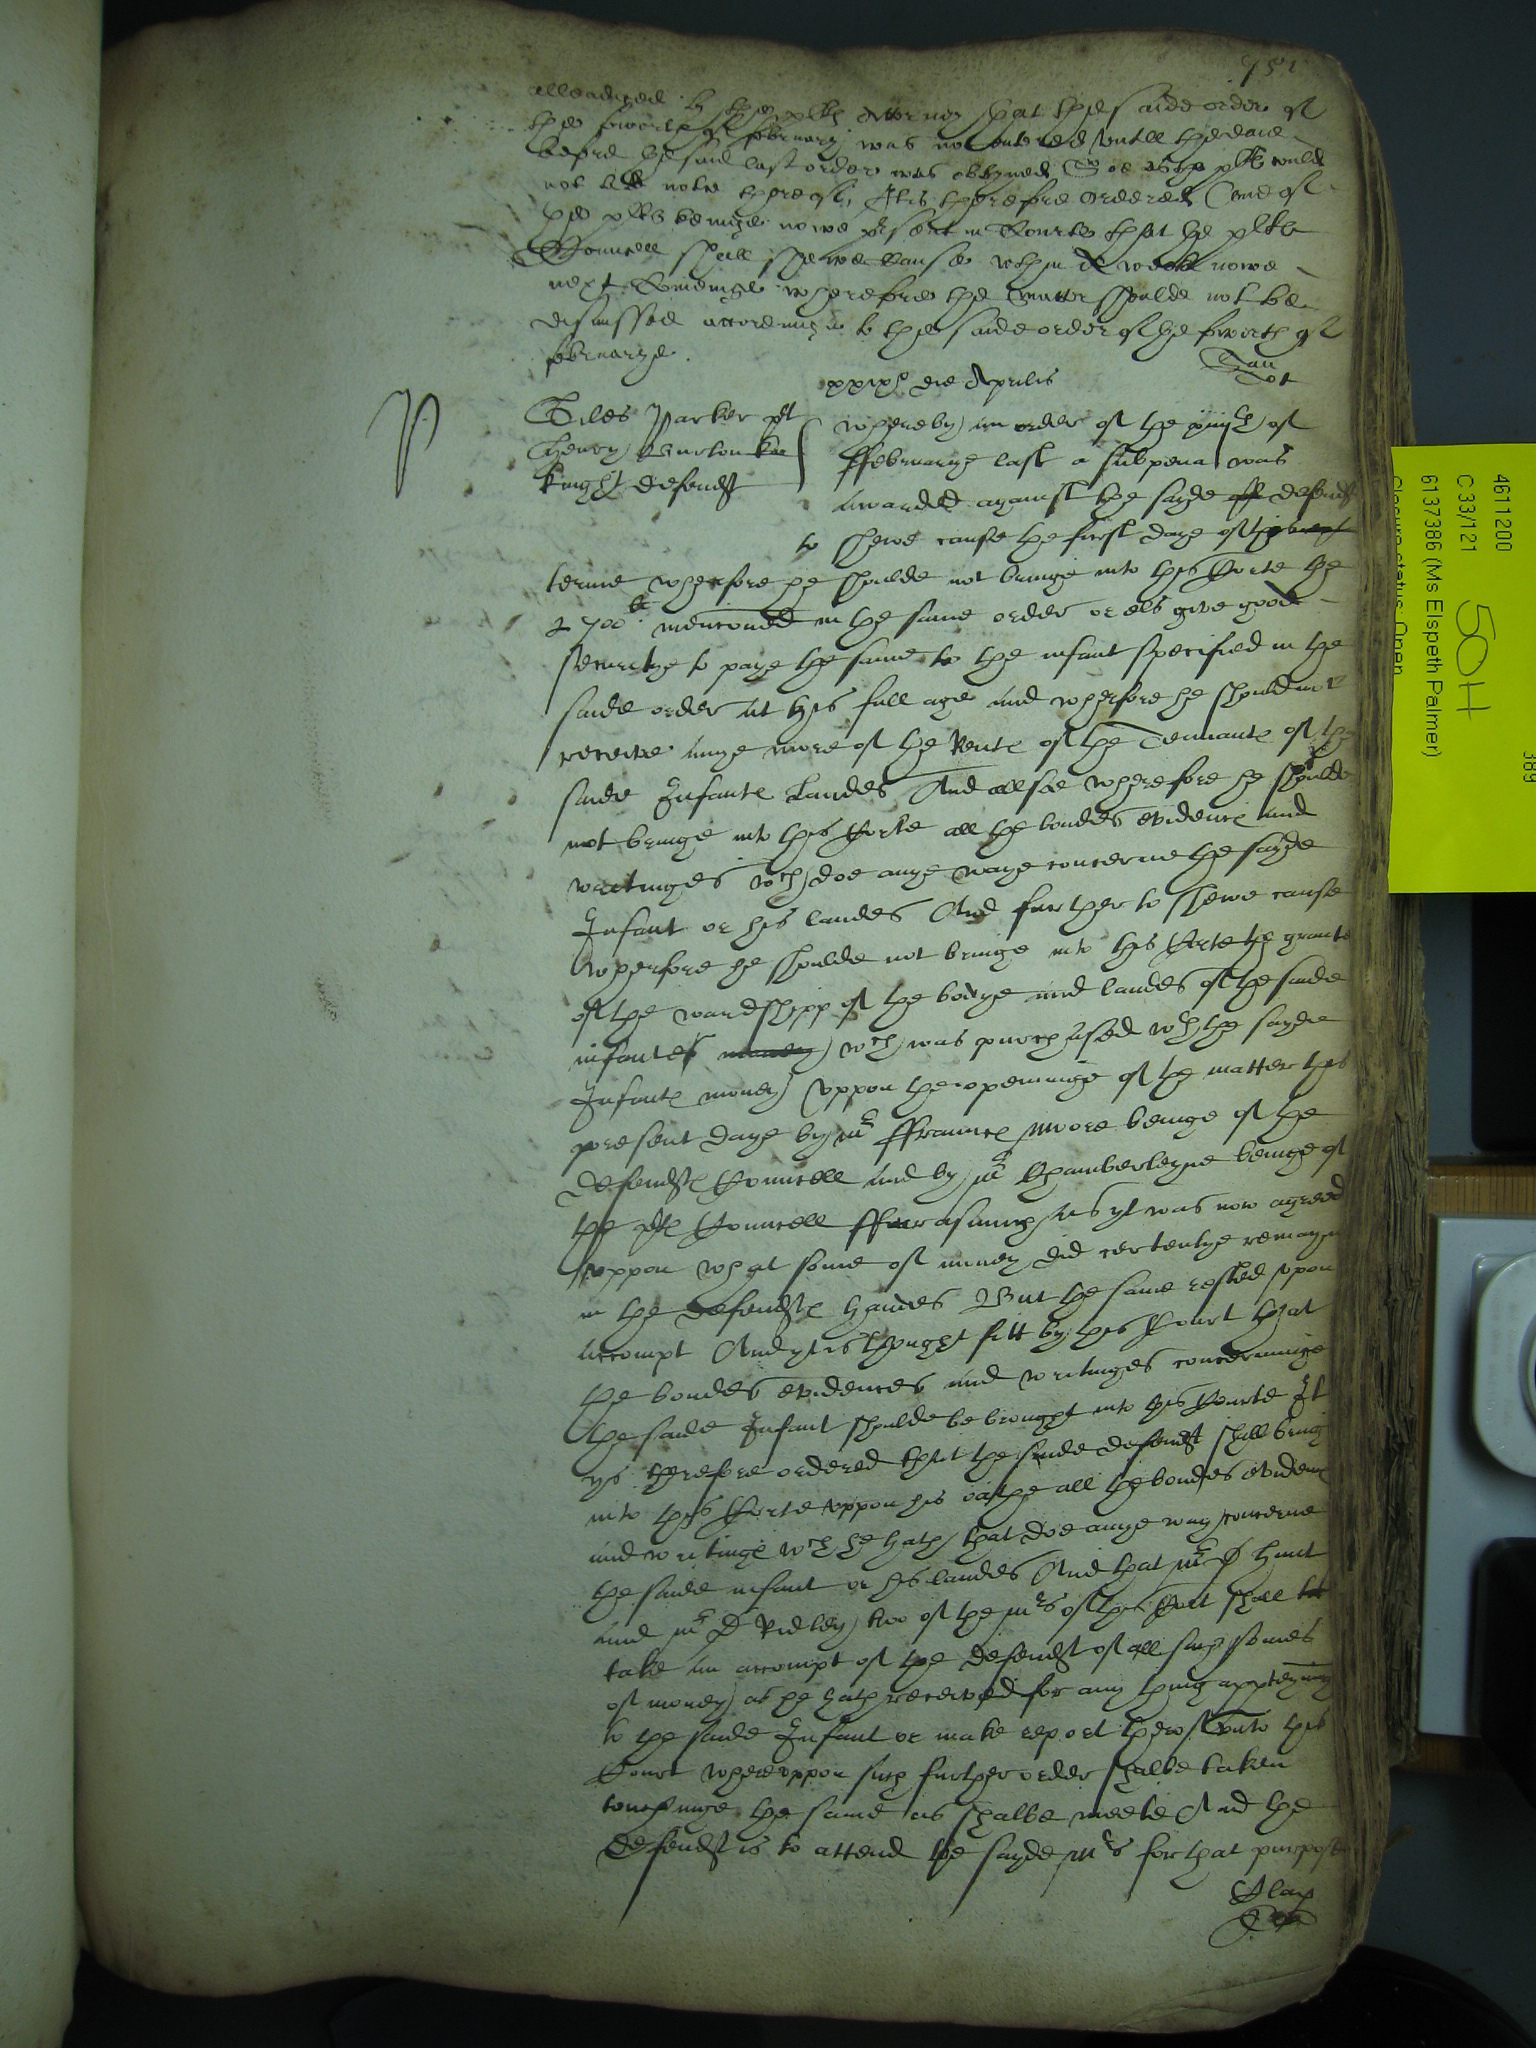 751
alleadged by the plts Attorney that the saide order of
the fowerth of february was not entered untill the daie
before the said last order was obteyned So as the plts could
not take note thereof, It is therefore Ordered (one of
the plts beinge nowe present in Courte) that the plts
Councell shall shewe cause wthin a weeke nowe
next Cominge wherefore the matter shoulde not be
dismissed accordinge to the saide order of the fowerth of
februarye.
xxixo die Aprilis
Giles Parker plt
Henry Burton kn
knight defendt
P
Whereby an order of the xiiijth of
ffebruarye last a subpena was
awarded against the sayde off defendt
to shewe cause the first daye of this next
terme wherfore he shoulde not bringe into this Corte the
2700li mencioned in the same order or els give good
securitye to paye the same to the infant specified in the
saide order at his full age And wherfore he should not
receive anye more of the Rents of the Tennants of the
saide Infants Landes And allsoe wherefore he shoulde
not bringe into this Corte all the bondes evidence and
writinges wch doe anye waye concerne the sayde
Infant or his landes And further to shewe cause
wherfore he shoulde not bringe into this Corte the graunte
of the wardshipp of the bodye and landes of the saide
infantes money wch was purchased wth the sayde
Infants money Uppon the openinge of the matter this
present daye by mr ffrauncs Moore beinge of the
defendts Councell And by mr Chamberleyne beinge of
the plts Councell fforasmuch as yt was not agreed
uppon what some of money did certenlye remayne
in the defendts handes But the same rested upon
Accompt And yt is thought fitt by this Court that
the bondes evidences and writinges concerninge
the saide Infant shoulde be brought into this Courte It
ys therefore ordered that the saide defendt shall bring
into this Corte uppon his oathe all the bondes evidence
and writings wch he hath that doe anye way concerne
the saide infant or his landes And that mr D Hunt
and mr D Ridley two of the mrs of this Court shall tak
take an accompt of the defendt of all such somes
of money as he hath received for any thing apperteyning
to the saide Infant or make report therof unto this
Court whereuppon such further order shalbe taken
touchinge the same as shalbe meete And the
defendt is to attend the sayde mrs for that purpose